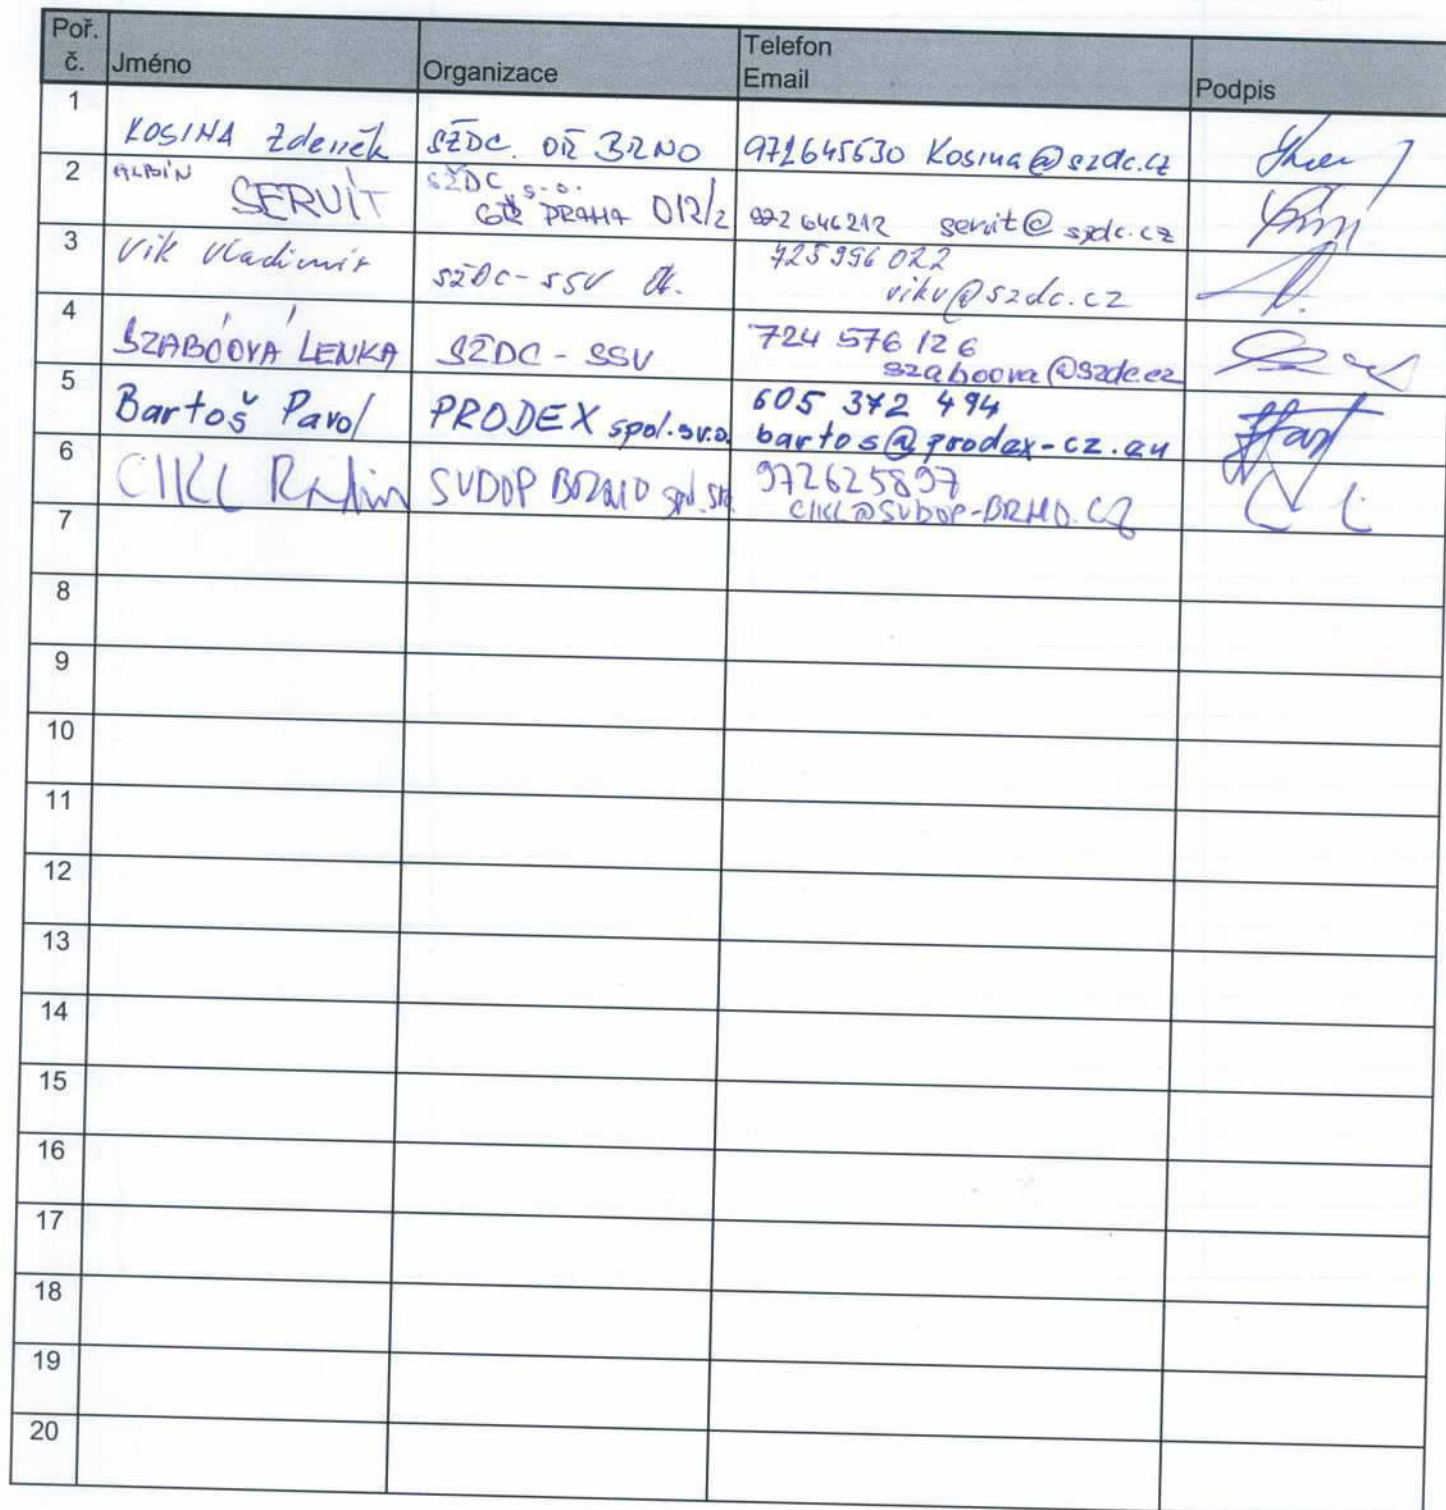 Poř. č. Jméno Organizace Telefon Email Podpis
1 KOSINA Zdeněk SŽDC. OŘ BRNO 972645630 Kosina@szdc.cz
2 ALBÍN SERVÍT SŽDC, s.o. GŘ PRAHA O12/2 972 646212 servit@szdc.cz
3 Vik Vladimír SŽDC-SSV 725 996 022 vikv@szdc.cz
4 SZABÓOVÁ LENKA SŽDC - SSV 724 576 126 szaboova@szdc.cz
5 Bartoš Pavol PRODEX spol. s r.o. 605 372 494 bartos@prodex-cz.eu
6 CIKL Radim SUDOP BRNO spol. s r.o. 972625897 CIKL@SUDOP-BRNO.CZ
7
8
9
10
11
12
13
14
15
16
17
18
19
20